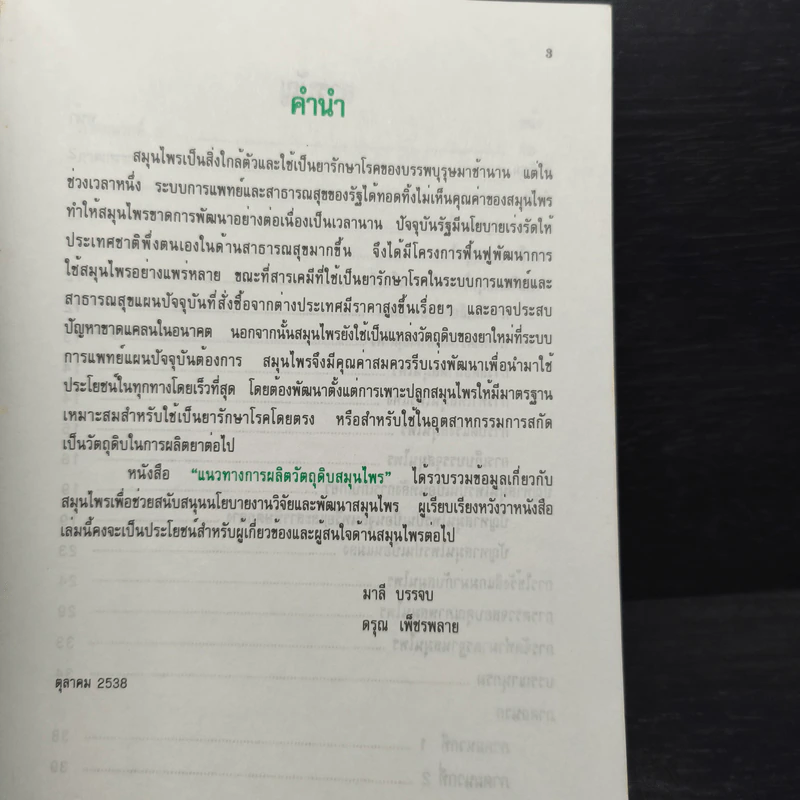 3
คำนำ
สมุนไพรเป็นสิ่งใกล้ตัวและใช้เป็นยารักษาโรคของบรรพบุรุษมาช้านาน แต่ใน
ช่วงเวลาหนึ่ง ระบบการแพทย์และสาธารณสุขของรัฐได้ทอดทิ้งไม่เห็นคุณค่าของสมุนไพร
ทำให้สมุนไพรขาดการพัฒนาอย่างต่อเนื่องเป็นเวลานาน ปัจจุบันรัฐมีนโยบายเร่งรัดให้
ประเทศชาติพึ่งตนเองในด้านสาธารณสุขมากขึ้น จึงได้มีโครงการฟื้นฟูพัฒนาการ
ใช้สมุนไพรอย่างแพร่หลาย ขณะที่สารเคมีที่ใช้เป็นยารักษาโรคในระบบการแพทย์และ
สาธารณสุขแผนปัจจุบันที่สั่งซื้อจากต่างประเทศมีราคาสูงขึ้นเรื่อยๆ และอาจประสบ
ปัญหาขาดแคลนในอนาคต นอกจากนั้นสมุนไพรยังใช้เป็นแหล่งวัตถุดิบของยาใหม่ที่ระบบ
การแพทย์แผนปัจจุบันต้องการ สมุนไพรจึงมีคุณค่าสมควรรีบเร่งพัฒนาเพื่อนำมาใช้
ประโยชน์ในทุกทางโดยเร็วที่สุด โดยต้องพัฒนาตั้งแต่การเพาะปลูกสมุนไพรให้มีมาตรฐาน
เหมาะสมสำหรับใช้เป็นยารักษาโรคโดยตรง หรือสำหรับใช้ในอุตสาหกรรมการสกัด
เป็นวัตถุดิบในการผลิตยาต่อไป
หนังสือ "แนวทางการผลิตวัตถุดิบสมุนไพร" ได้รวบรวมข้อมูลเกี่ยวกับ
สมุนไพรเพื่อช่วยสนับสนุนนโยบายงานวิจัยและพัฒนาสมุนไพร ผู้เรียบเรียงหวังว่าหนังสือ
เล่มนี้คงจะเป็นประโยชน์สำหรับผู้เกี่ยวข้องและผู้สนใจด้านสมุนไพรต่อไป
มาลี บรรจบ
ดรุณ เพ็ชรพลาย
ตุลาคม 2538